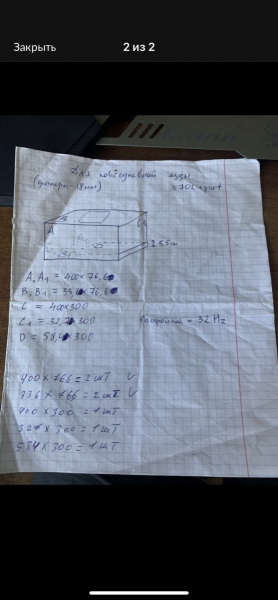 Закрыть
2 из 2
Для повседневной
(фанера 18мм)
≈70L+port
B
A
D
2 5,5см
A, A₁ = 400×76,6
B, B₁ = 33,6×76,6
C = 400×300
C₁ = 32,7×300
D = 58,4×300
Настройка = 32 Hz
400 × 766 = 2 шт V
336 × 766 = 2 шт V
400 × 300 = 1 шт
327 × 300 = 1 шт
584 × 300 = 1 шт